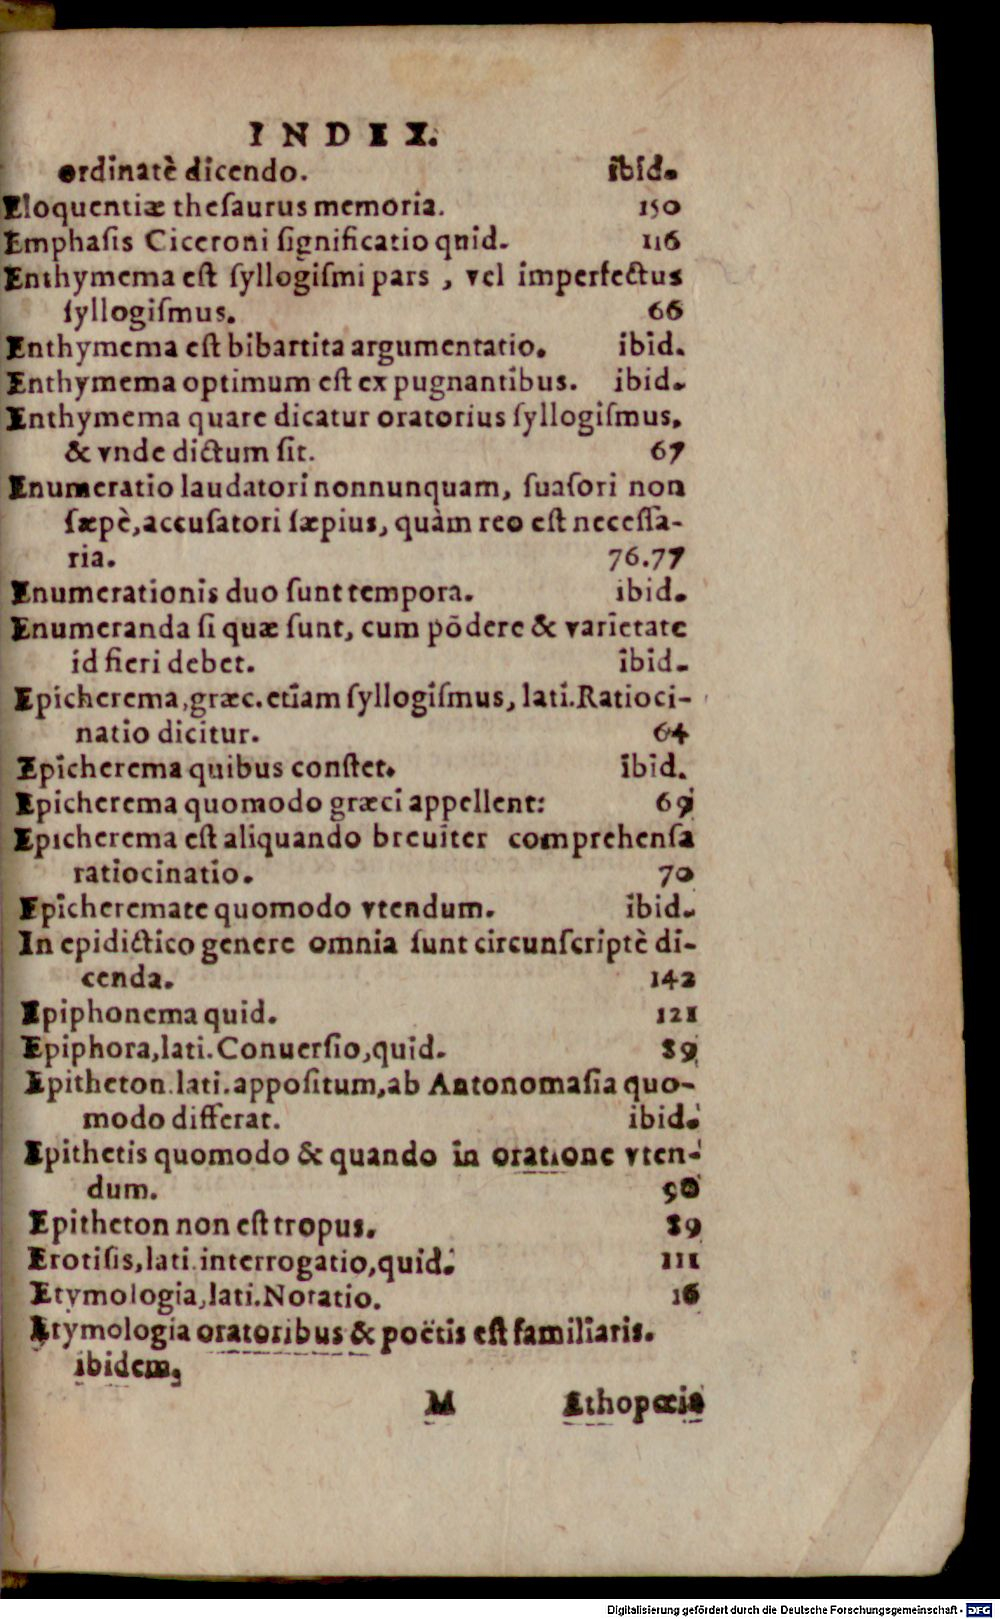 INDEX.
ordinatè dicendo. ibid.
Eloquentiæ theſaurus memoria. 150
Emphaſis Ciceroni ſignificatio quid. 116
Enthymema eſt ſyllogiſmi pars, vel imperfectus
ſyllogiſmus. 66
Enthymema eſt bibartita argumentatio. ibid.
Enthymema optimum eſt ex pugnantibus. ibid.
Enthymema quare dicatur oratorius ſyllogiſmus,
& vnde dictum ſit. 67
Enumeratio laudatori nonnunquam, ſuaſori non
ſæpè, accuſatori ſæpius, quàm reo eſt neceſſa-
ria. 76.77
Enumerationis duo ſunt tempora. ibid.
Enumeranda ſi quæ ſunt, cum põdere & varietate
id fieri debet. ibid.
Epicherema, græc. etiam ſyllogiſmus, lati. Ratioci-
natio dicitur. 64
Epicherema quibus conſtet. ibid.
Epicherema quomodo græci appellent: 69
Epicherema eſt aliquando breuiter comprehenſa
ratiocinatio. 70
Epicheremate quomodo vtendum. ibid.
In epidictico genere omnia ſunt circunſcriptè di-
cenda. 142
Epiphonema quid. 121
Epiphora, lati. Conuerſio, quid. 89
Epitheton lati. appoſitum, ab Antonomaſia quo-
modo differat. ibid.
Epithetis quomodo & quando in oratione vten-
dum. 90
Epitheton non eſt tropus. 89
Erotiſis, lati. interrogatio, quid. 111
Etymologia, lati. Notatio. 16
Etymologia oratoribus & poëtis eſt familiaris.
ibidem.
M Æthopœia
Digitalisierung gefördert durch die Deutsche Forschungsgemeinschaft - DFG